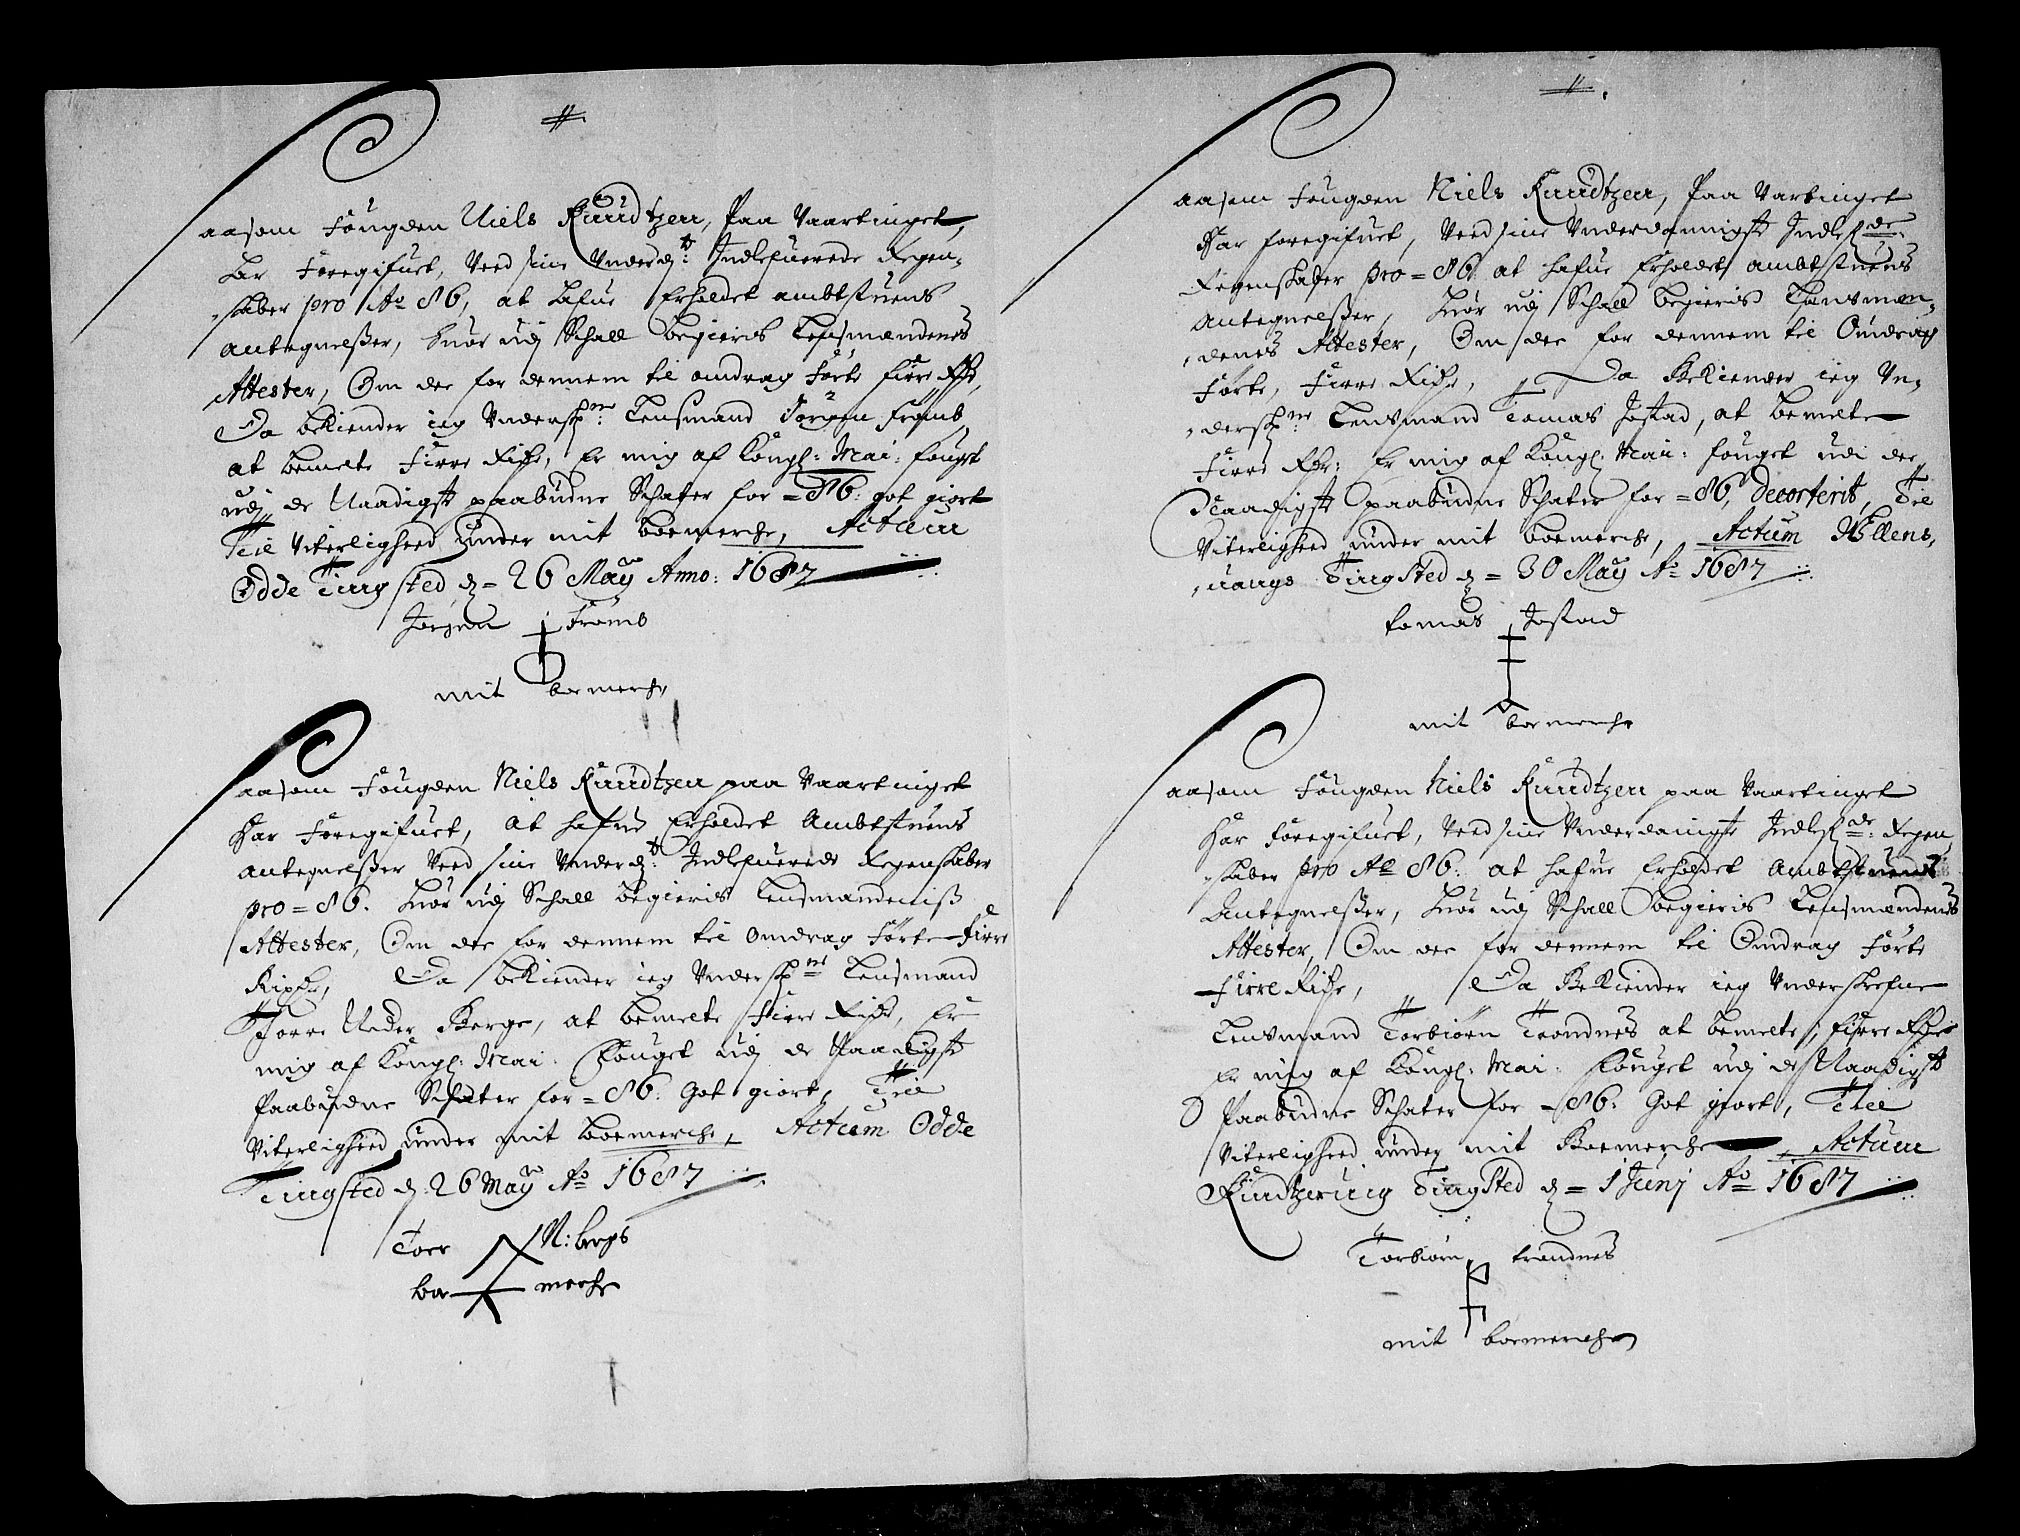 aasom Fougden Niels Knudtzen, Paa Vaartinget,
har Foregifuet, Veed sine Underd: Indlefuerede Regen-
skaber pro Ao 86, at hafue Erholdet ambtstuens
Antegnelsser, huor udj Schall begieris Lensmændenes
Attester, Om der for dennem til omdrag Førte fiire Rixdr,
Da bekiender ieg Undersch:ne Lensmand Jørgen Fromb,
at bemelte Fiire Rixdr, Er mig af Kongl: Mai: fouget
udj de Naadigst paabudne Schater for = 86: got giort
Teil Viterligheed under mit boemerche, Actum
Odde Tingsted d = 26 May Anno: 1687
Jørgen Fromb
mit boemerche
aasom Fougden Niels Knudtzen paa Vaartinget
har Foregifuet, at hafue Erholdet Ambtstuens
antegnelsser Veed sine Underd: Indlefuerede Regenskaber
pro = 86. huor udj Schall begieris Lensmandeniss
Attester, Om der for dennem til Omdrag Førte Fiire
Rixdr, Da bekiender ieg Undersch:ne Lensmand
Torre Under Berge, at bemelte Fiire Rixdr, Er
mig af Kongl: Mai: Fouget udj de Naadigst
Paabudne Schater for = 86: Got giort, Teil
Viterligheed under mit boemerche, Actum Odde
Tingsted d: 26 May Ao 1687
Toer N: bergs
boemerche
aasom Fougden Niels Knudtzen, Paa Vartinget
Har foregifuet, Veed sine Underdannigst Indlef:de
Regenskaber pro = 86: at hafue Erholdet ambtstuens
Antegnelsser, huor udj Schall begieris Lensmen-
denes Attester, Om der for dennem til Omdrag
Førte, Fiire Rixdr, Da Bekiender ieg Un-
dersch:ne Lensmand Tomas Jostad, at bemelte
Fiire Rdr: Er mig af Kongl Mai: fouget udi de
Naadigst paabudne Schater for = 86, Decorterit, Teil
Viterligheed under mit boemerche, Actum Ællens,
uangs Tingsted d = 30 May Ao 1687
Tomas Jostad
mit boemerche
aasom Fougden Niels Knudtzen paa Vaartinget
har Foregifuet, Veed sine Underdanigst Indlef:de Regen
skaber pro Ao 86: at hafue Erholdet Ambtstuends
Antegnelsser, huor udj Schall begieris Lensmændenes
Attester, Om der for dennem til Omdrag Førte
Fiire Rixdr, Da Bekiender ieg Underskrefne
Lensmand Torbiørn Trondnes at bemelte, fiire Rixdr
Er mig af Kongl: Mai: Fouget udj de Naadigst
Paabudne Schater for = 86: Got giort, Teil
Viterligheed under mit Boemerche Actum
Kindtzeruig Tingsted d = 1 Junj Ao 1687
Torbiørn trondnes
mit boemerche